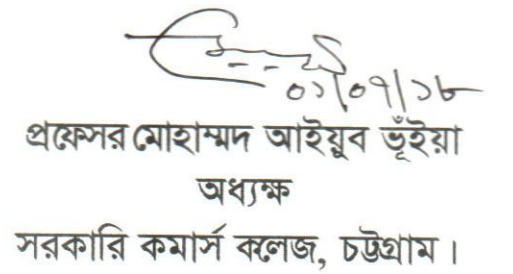 ০১/০৭/১৮
প্রফেসর মোহাম্মদ আইয়ুব ভূঁইয়া
অধ্যক্ষ
সরকারি কমার্স কলেজ, চট্টগ্রাম।